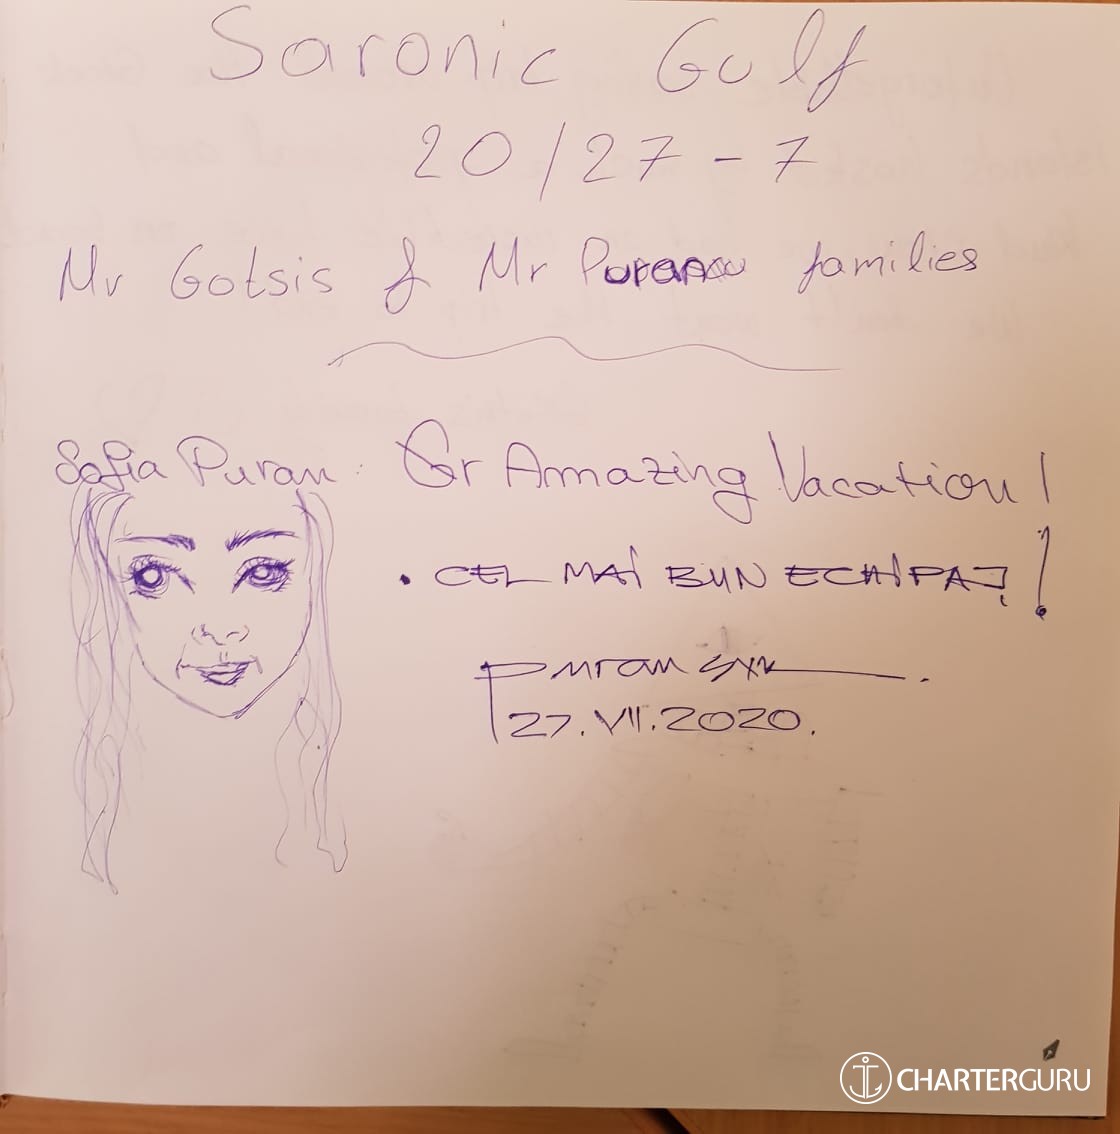 Saronic Gulf
20/27-7
Mr Gotsis & Mr Puranu families
Sofia Puran: Gr Amazing Vacation!
• CEL MAI BUN ECHIPAJ!
Puran
27.VII.2020.
CHARTERGURU